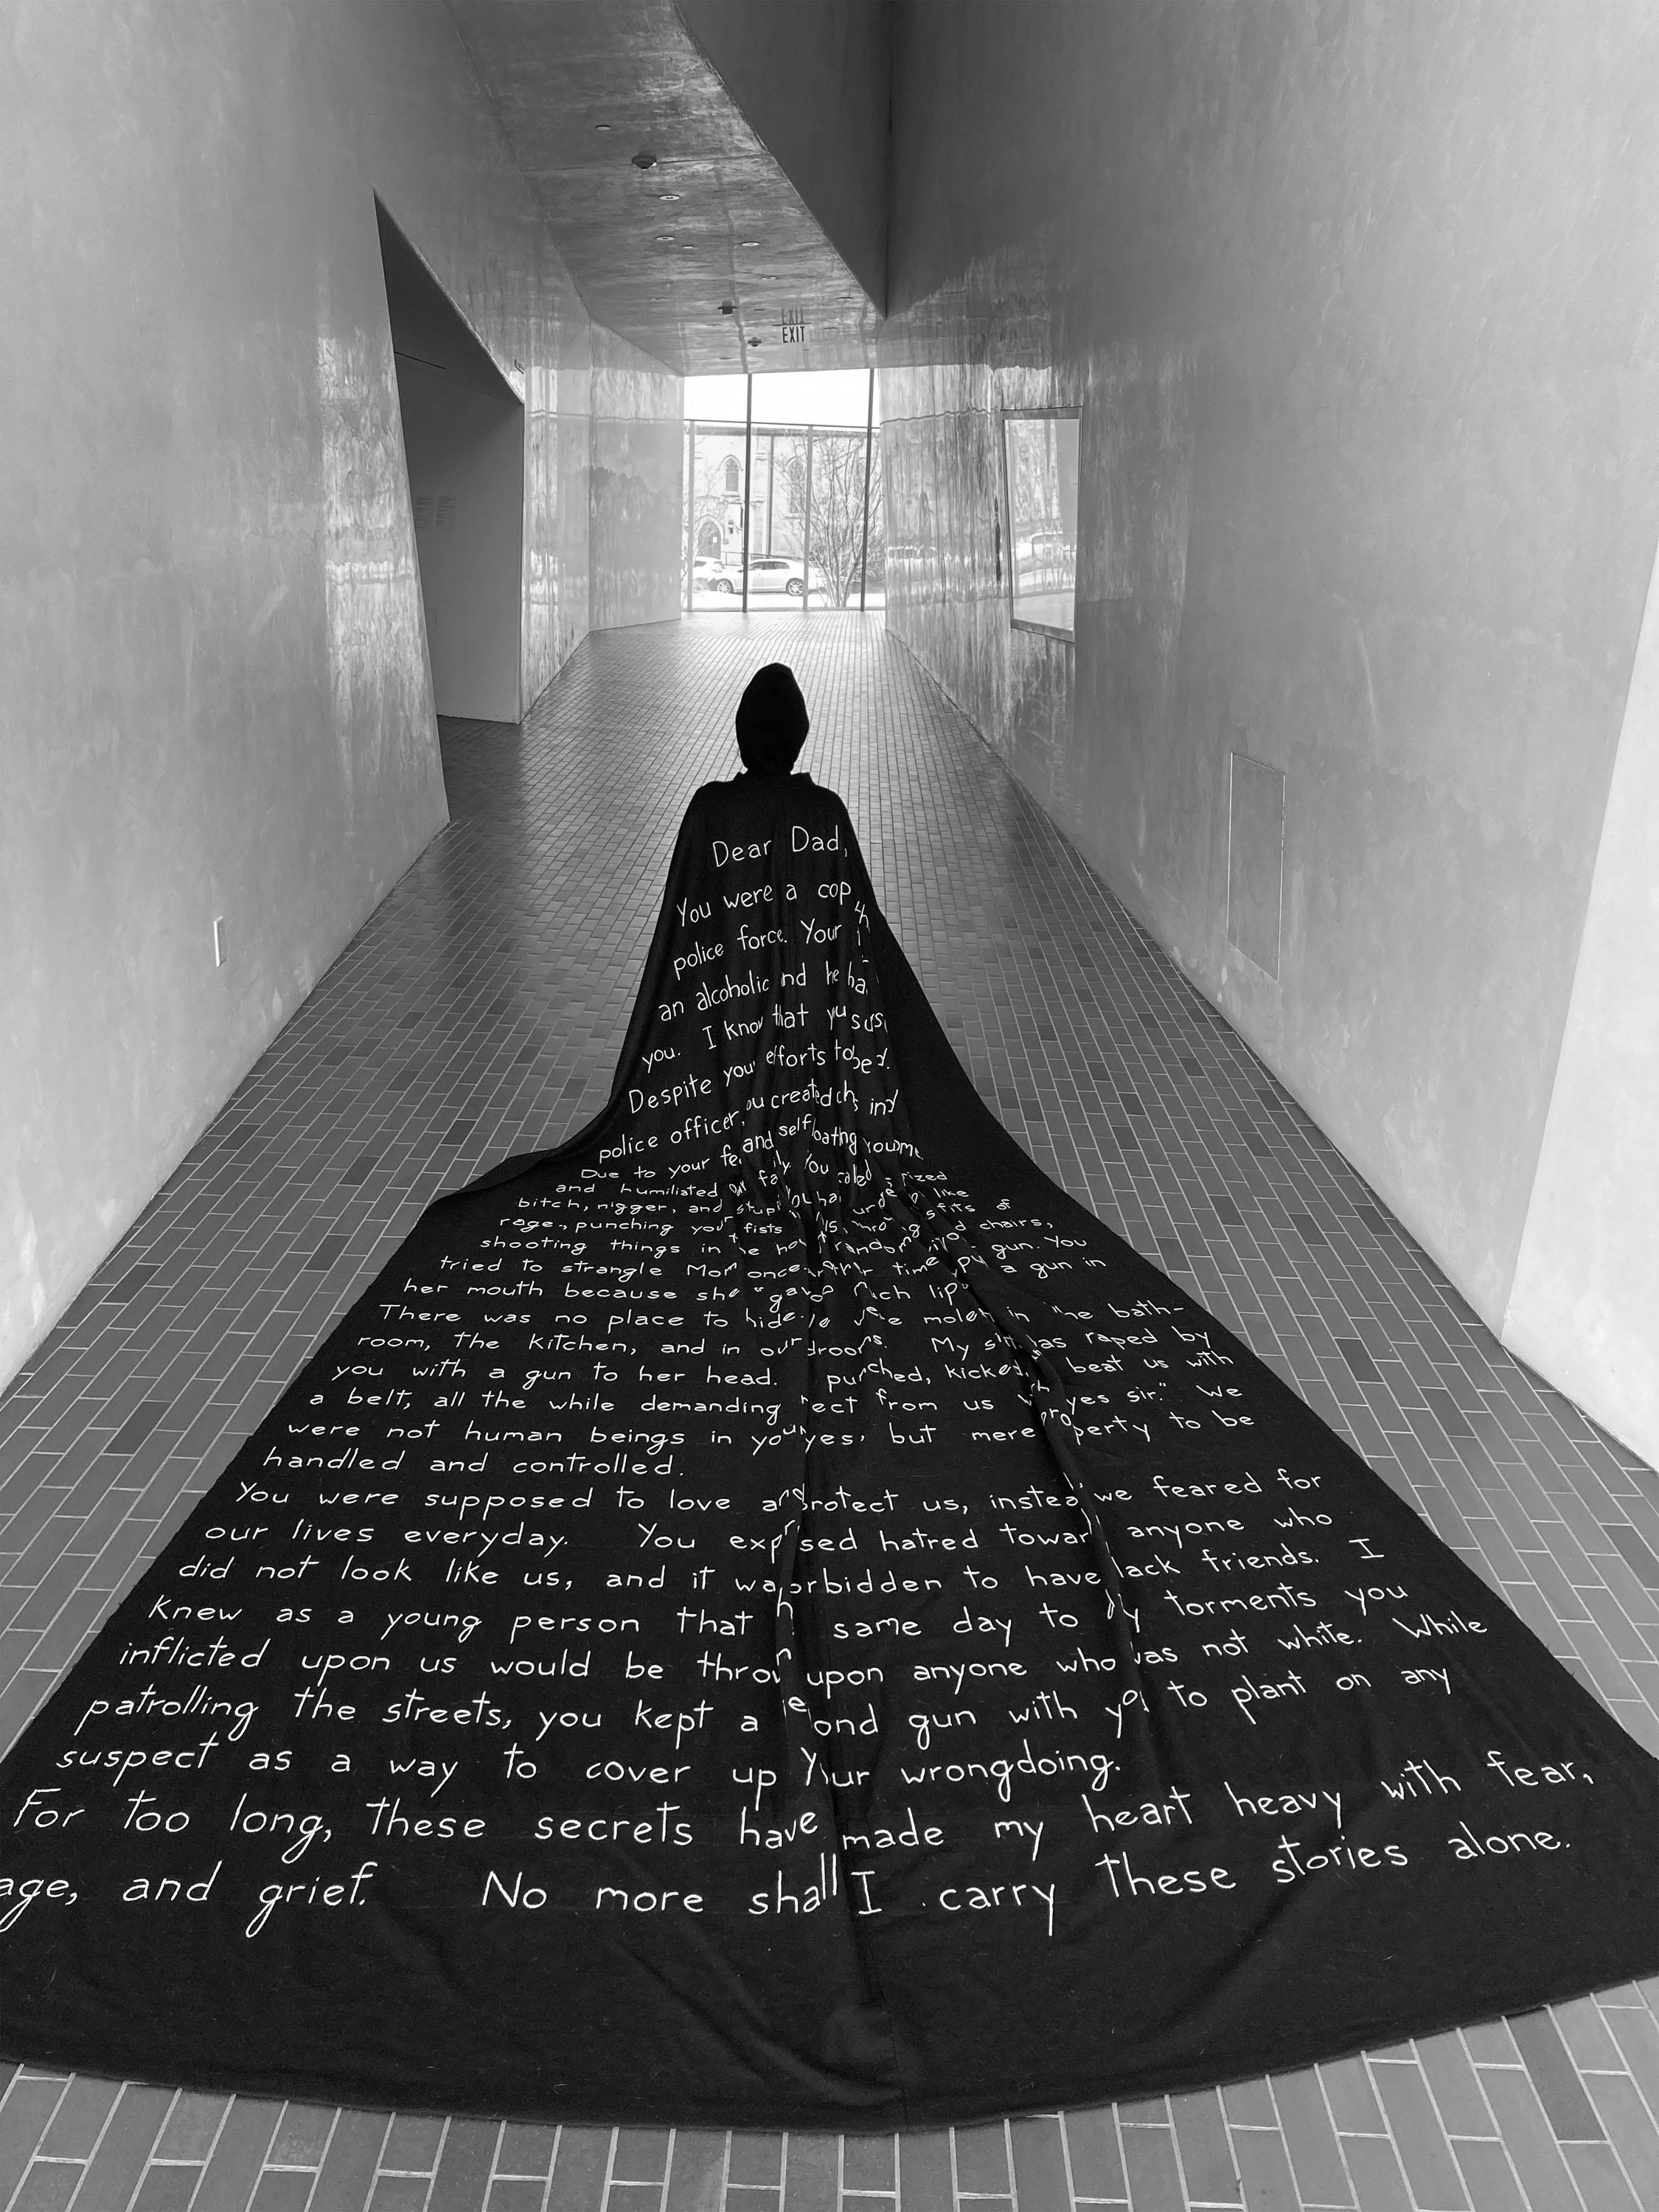 EXIT
Dear Dad,
You were a cop
police force. Your
an alcoholic and he
you. I know that you
Despite your efforts to be
police officer, you created
Due to your and self loathing you
and humiliated our family. You called
bitch, nigger, and stupid. You had like fits of
rage, punching your fists chairs,
shooting things in the house gun. You
tried to strangle Mom once, another time you put a gun in
her mouth because she "gave lip".
There was no place to hide. We were molested in the bath-
room, the kitchen, and in our bedrooms. My sister was raped by
you with a gun to her head. punched, kicked, beat us with
a belt, all the while demanding respect from us with yes sir." We
were not human beings in your eyes, but mere property to be
handled and controlled.
You were supposed to love and protect us, instead we feared for
our lives everyday. You expressed hatred toward anyone who
did not look like us, and it was forbidden to have black friends. I
knew as a young person that same day to day torments you
inflicted upon us would be thrown upon anyone who was not white. While
patrolling the streets, you kept a second gun with you to plant on any
suspect as a way to cover up your wrongdoing.
For too long, these secrets have made my heart heavy with fear,
age, and grief. No more shall I carry these stories alone.